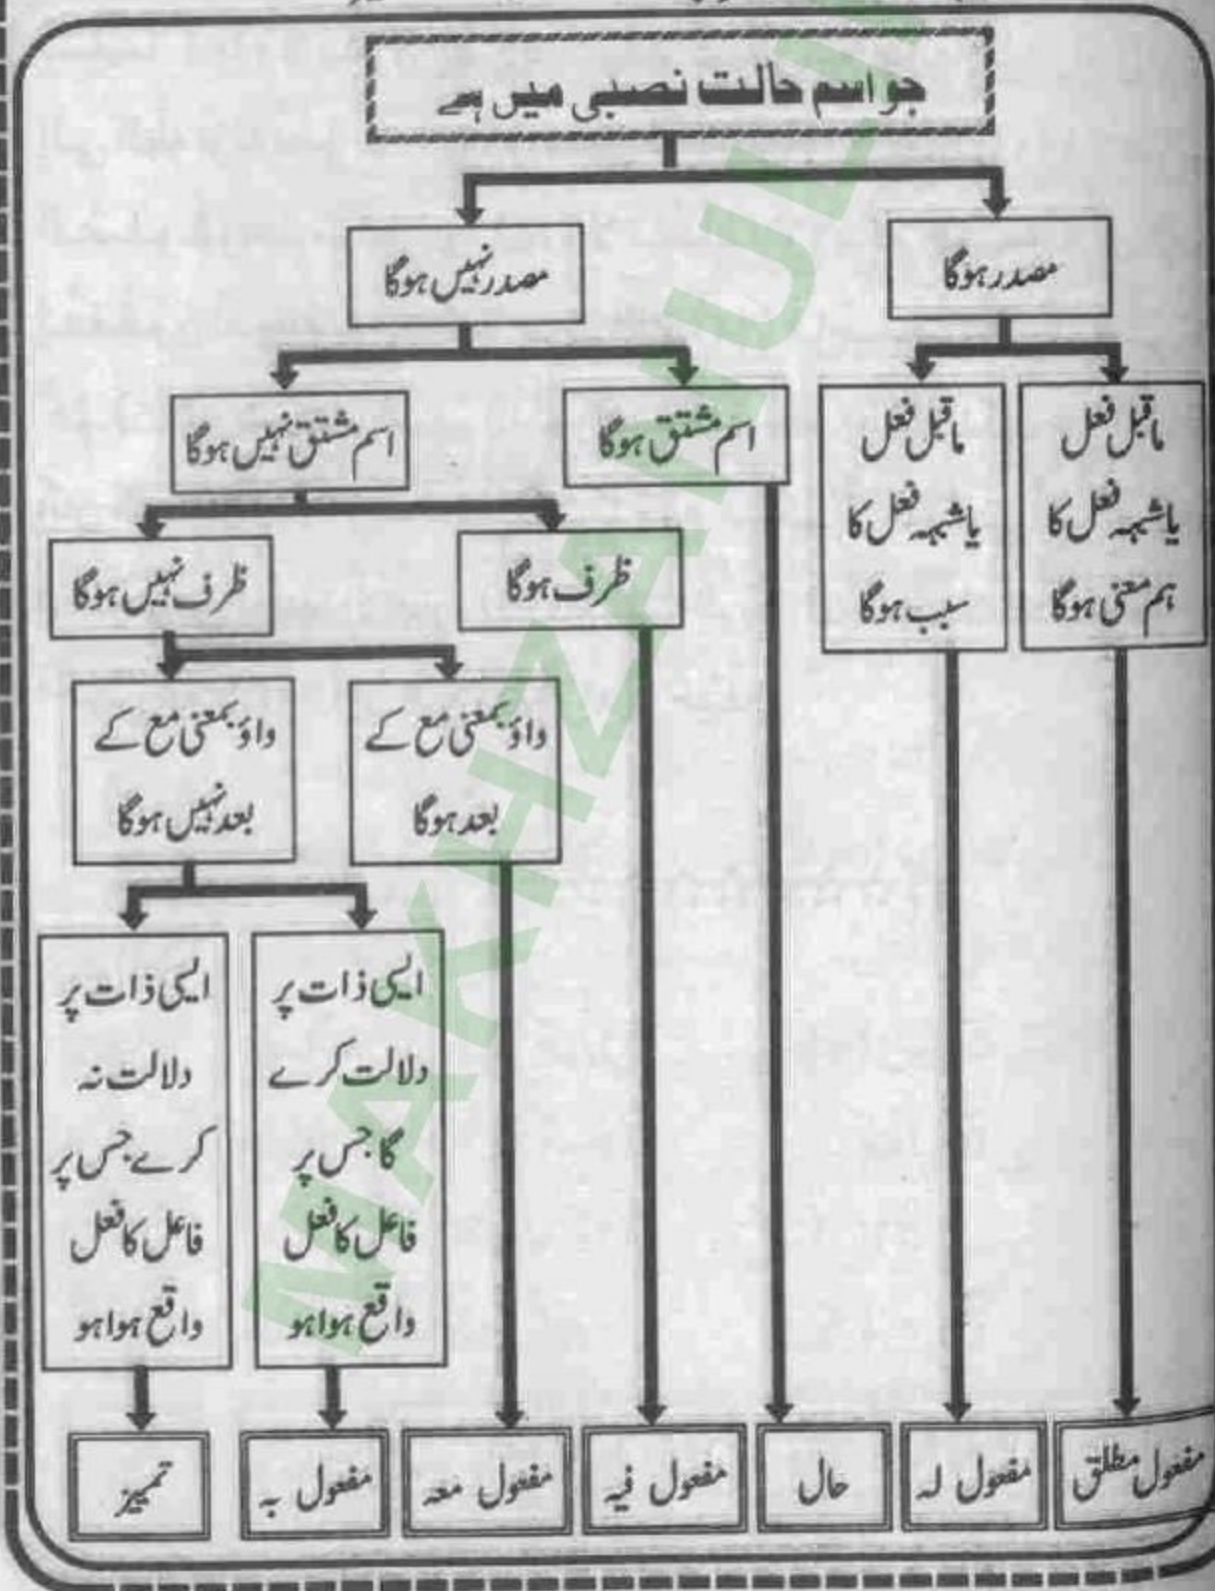 جو اسم حالت نصبی میں ہے
مصدر ہوگا
مصدر نہیں ہوگا
ماقبل فعل
یا شبہہ فعل کا
ہم معنی ہوگا
ماقبل فعل
یا شبہہ فعل کا
سبب ہوگا
اسم مشتق ہوگا
اسم مشتق نہیں ہوگا
ظرف ہوگا
ظرف نہیں ہوگا
واؤ بمعنی مع کے
بعد ہوگا
واؤ بمعنی مع کے
بعد نہیں ہوگا
ایسی ذات پر
دلالت کرے
گا جس پر
فاعل کا فعل
واقع ہوا ہو
ایسی ذات پر
دلالت نہ
کرے جس پر
فاعل کا فعل
واقع ہوا ہو
مفعول مطلق
مفعول لہ
حال
مفعول فیہ
مفعول معہ
مفعول بہ
تمیز
MAKHZANUL